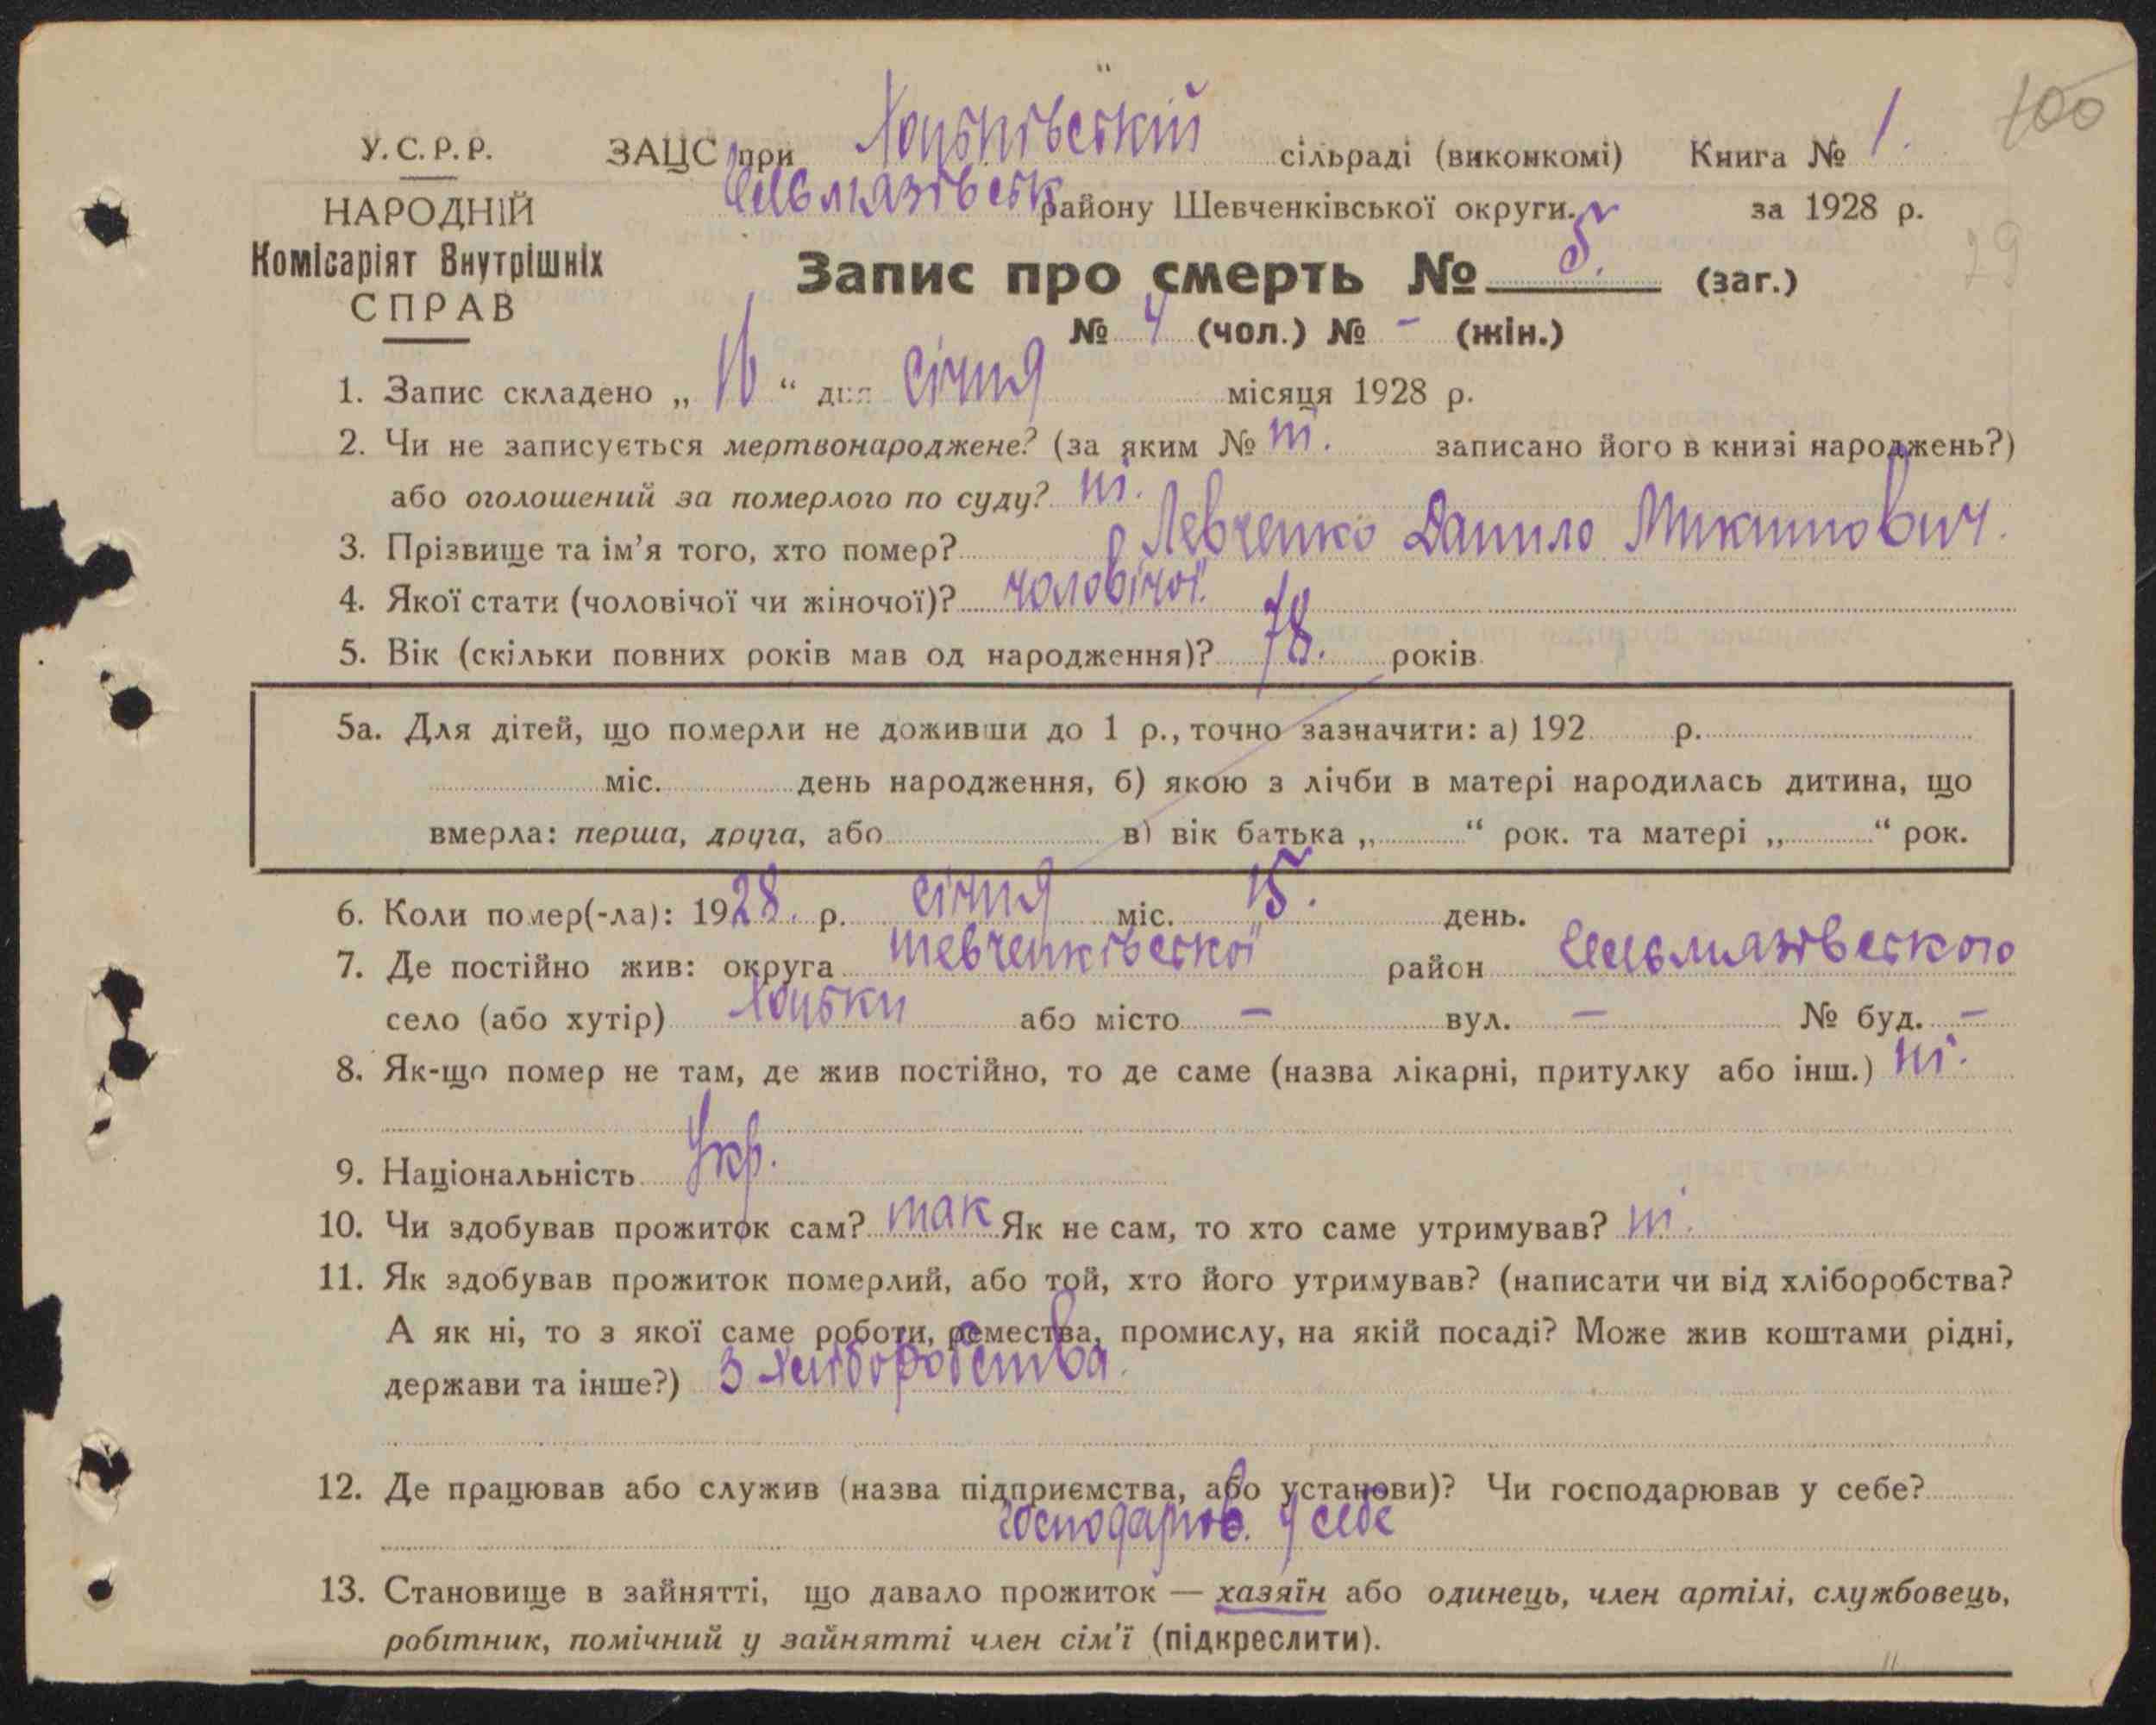 100
У.С.Р.Р. ЗАЦС при Хоцьківській сільраді (виконкомі) Книга № 1.
НАРОДНІЙ Гельмязівськ району Шевченківської округи. за 1928 р.
29
Комісаріят Внутрішніх
СПРАВ
Запис про смерть № 5. (заг.)
№ 4 (чол.) № - (жін.)
1. Запис складено „ 16 “ дня січня місяця 1928 р.
2. Чи не записується мертвонароджене? (за яким № ні. записано його в книзі народжень?)
або оголошений за померлого по суду? ні.
3. Прізвище та ім’я того, хто помер? Левченко Данило Микитович.
4. Якої стати (чоловічої чи жіночої)? чоловічої.
5. Вік (скільки повних років мав од народження)? 78. років
5а. Для дітей, що померли не доживши до 1 р., точно зазначити: а) 192 р.
міс. день народження, б) якою з лічби в матері народилась дитина, що
вмерла: перша, друга, або в) вік батька „ “ рок. та матері „ “ рок.
6. Коли помер(-ла): 1928. р. січня міс. 15. день.
7. Де постійно жив: округа Шевченківської район Гельмязівського
село (або хутір) Хоцьки або місто — вул. — № буд. —
8. Як-що помер не там, де жив постійно, то де саме (назва лікарні, притулку або інш.) ні.
9. Національність Укр.
10. Чи здобував прожиток сам? так Як не сам, то хто саме утримував? ні.
11. Як здобував прожиток померлий, або той, хто його утримував? (написати чи від хліборобства?
А як ні, то з якої саме роботи, ремества, промислу, на якій посаді? Може жив коштами рідні,
держави та інше?) З хліборобства.
12. Де працював або служив (назва підприємства, або установи)? Чи господарював у себе?
господарюв. у себе
13. Становище в зайнятті, що давало прожиток — хазяїн або одинець, член артілі, службовець,
робітник, помічний у зайнятті член сім’ї (підкреслити).